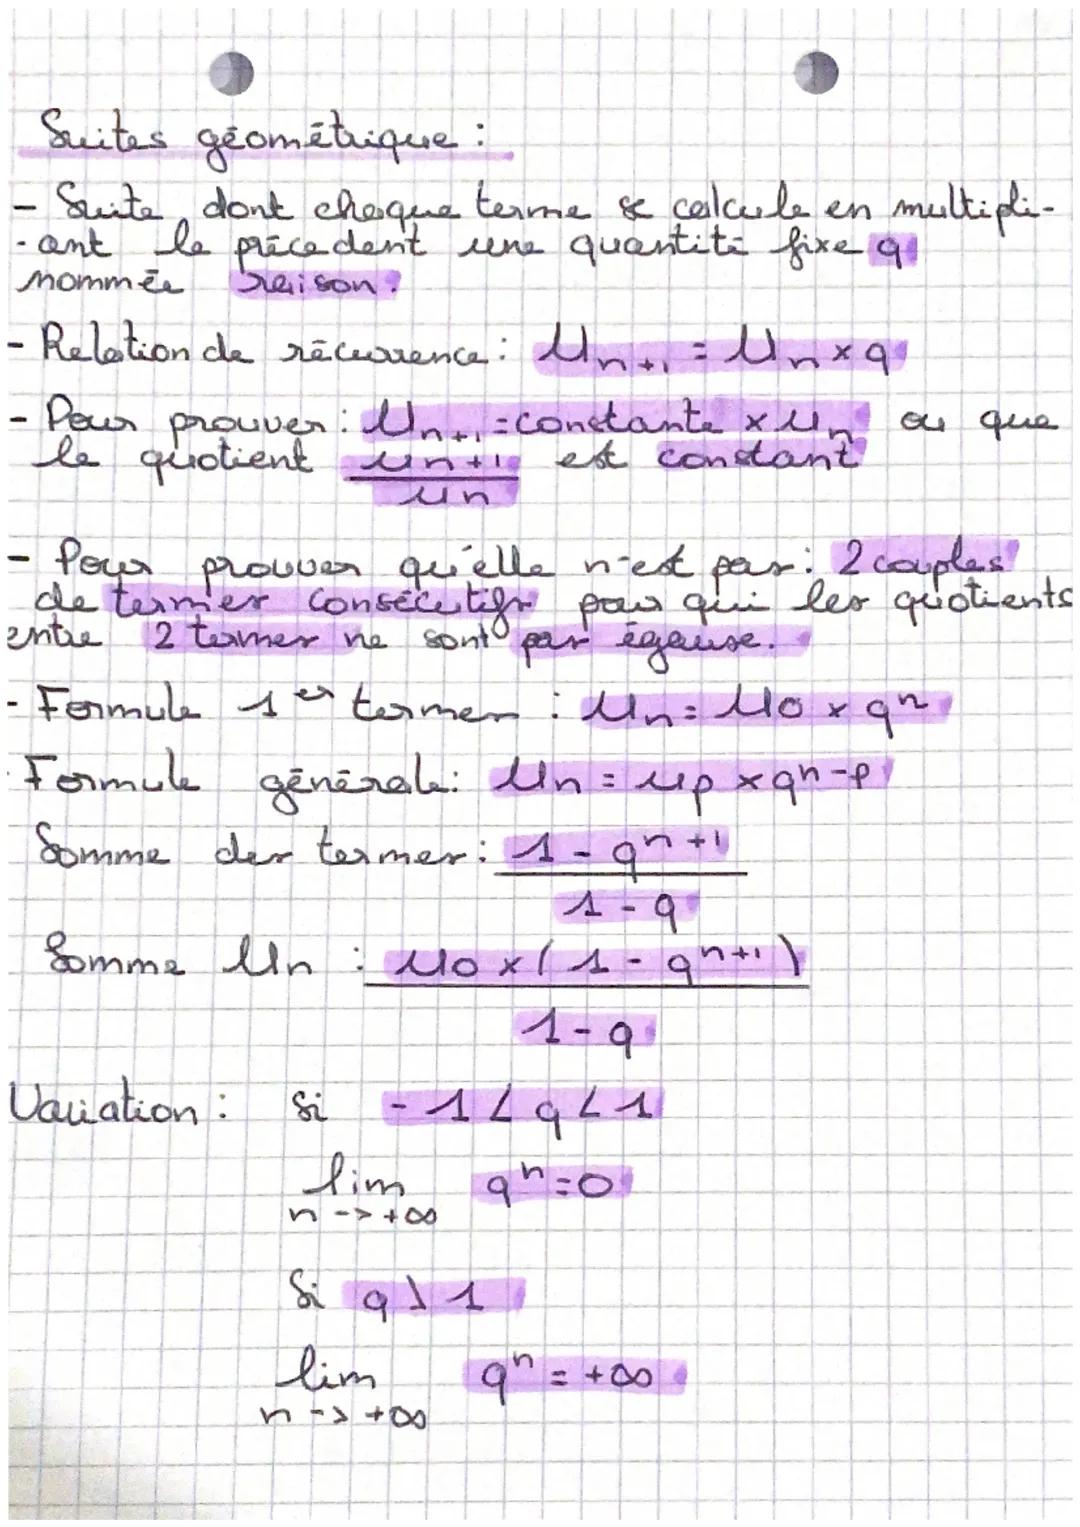 Suites géométrique :
- Suite dont chaque terme se calcule en multipli-
-ant le précedent une quantité fixe q
nommée raison.
- Relation de récurrence : Un+1 = Un × q
- Pour prouver : Un+1 = constante × un ou que
le quotient un+1 est constant
un
- Pour prouver qu'elle n'est pas : 2 couples
de termes consécutifs pour qui les quotients
entre 2 termes ne sont pas égause.
- Formule 1er termes : Un = U0 × qn
- Formule générale : Un = up × qn-p
Somme des termes : 1 - qn+1
1 - q
Somme Un : U0 × ( 1 - qn+1 )
1 - q
Variation : Si - 1 < q < 1
lim qn = 0
n -> +∞
Si q > 1
lim qn = +∞
n -> +∞